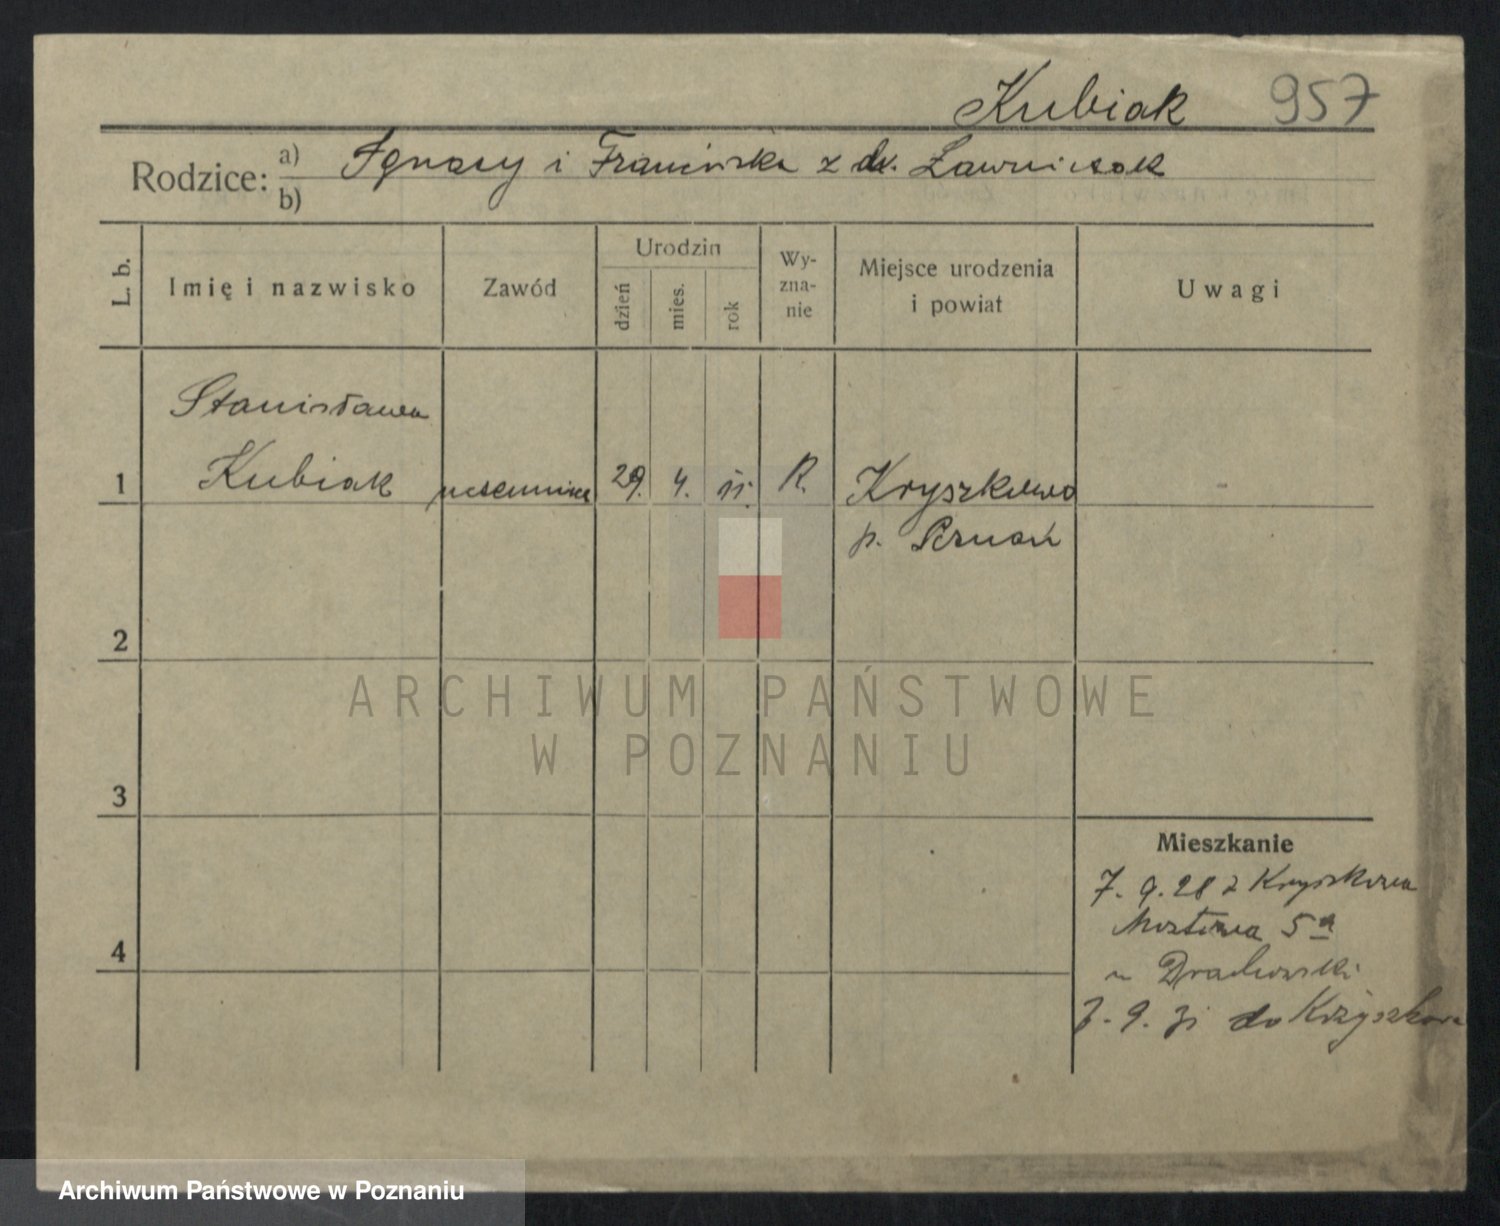 Kubiak 957
Rodzice: a) Ignacy i Franciszka z dw. Ławniczak
b)
L. b. Imię i nazwisko Zawód Urodzin dzień mies. rok Wy-zna-nie Miejsce urodzenia i powiat Uwagi
Stanisława
1 Kubiak uczennica 29. 4. 11. R. Kryszkowo -
p. Poznań
2
ARCHIWUM PAŃSTWOWE
W POZNANIU
3
Mieszkanie
7. 9. 28 z Kryszkowa
Mostowa 5a
4
u Drachowski
7. 9. 31 do Krzyszkowa
Archiwum Państwowe w Poznaniu